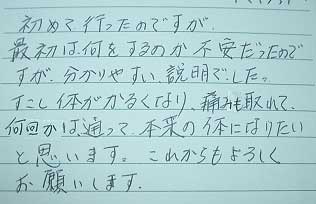 初めて行ったのですが、
最初は何をするのか不安だったので
すが、分かりやすい説明でした。
すこし体がかるくなり、痛みも取れて、
何回かは通って、本来の体になりたい
と思います。これからもよろしく
お願いします。